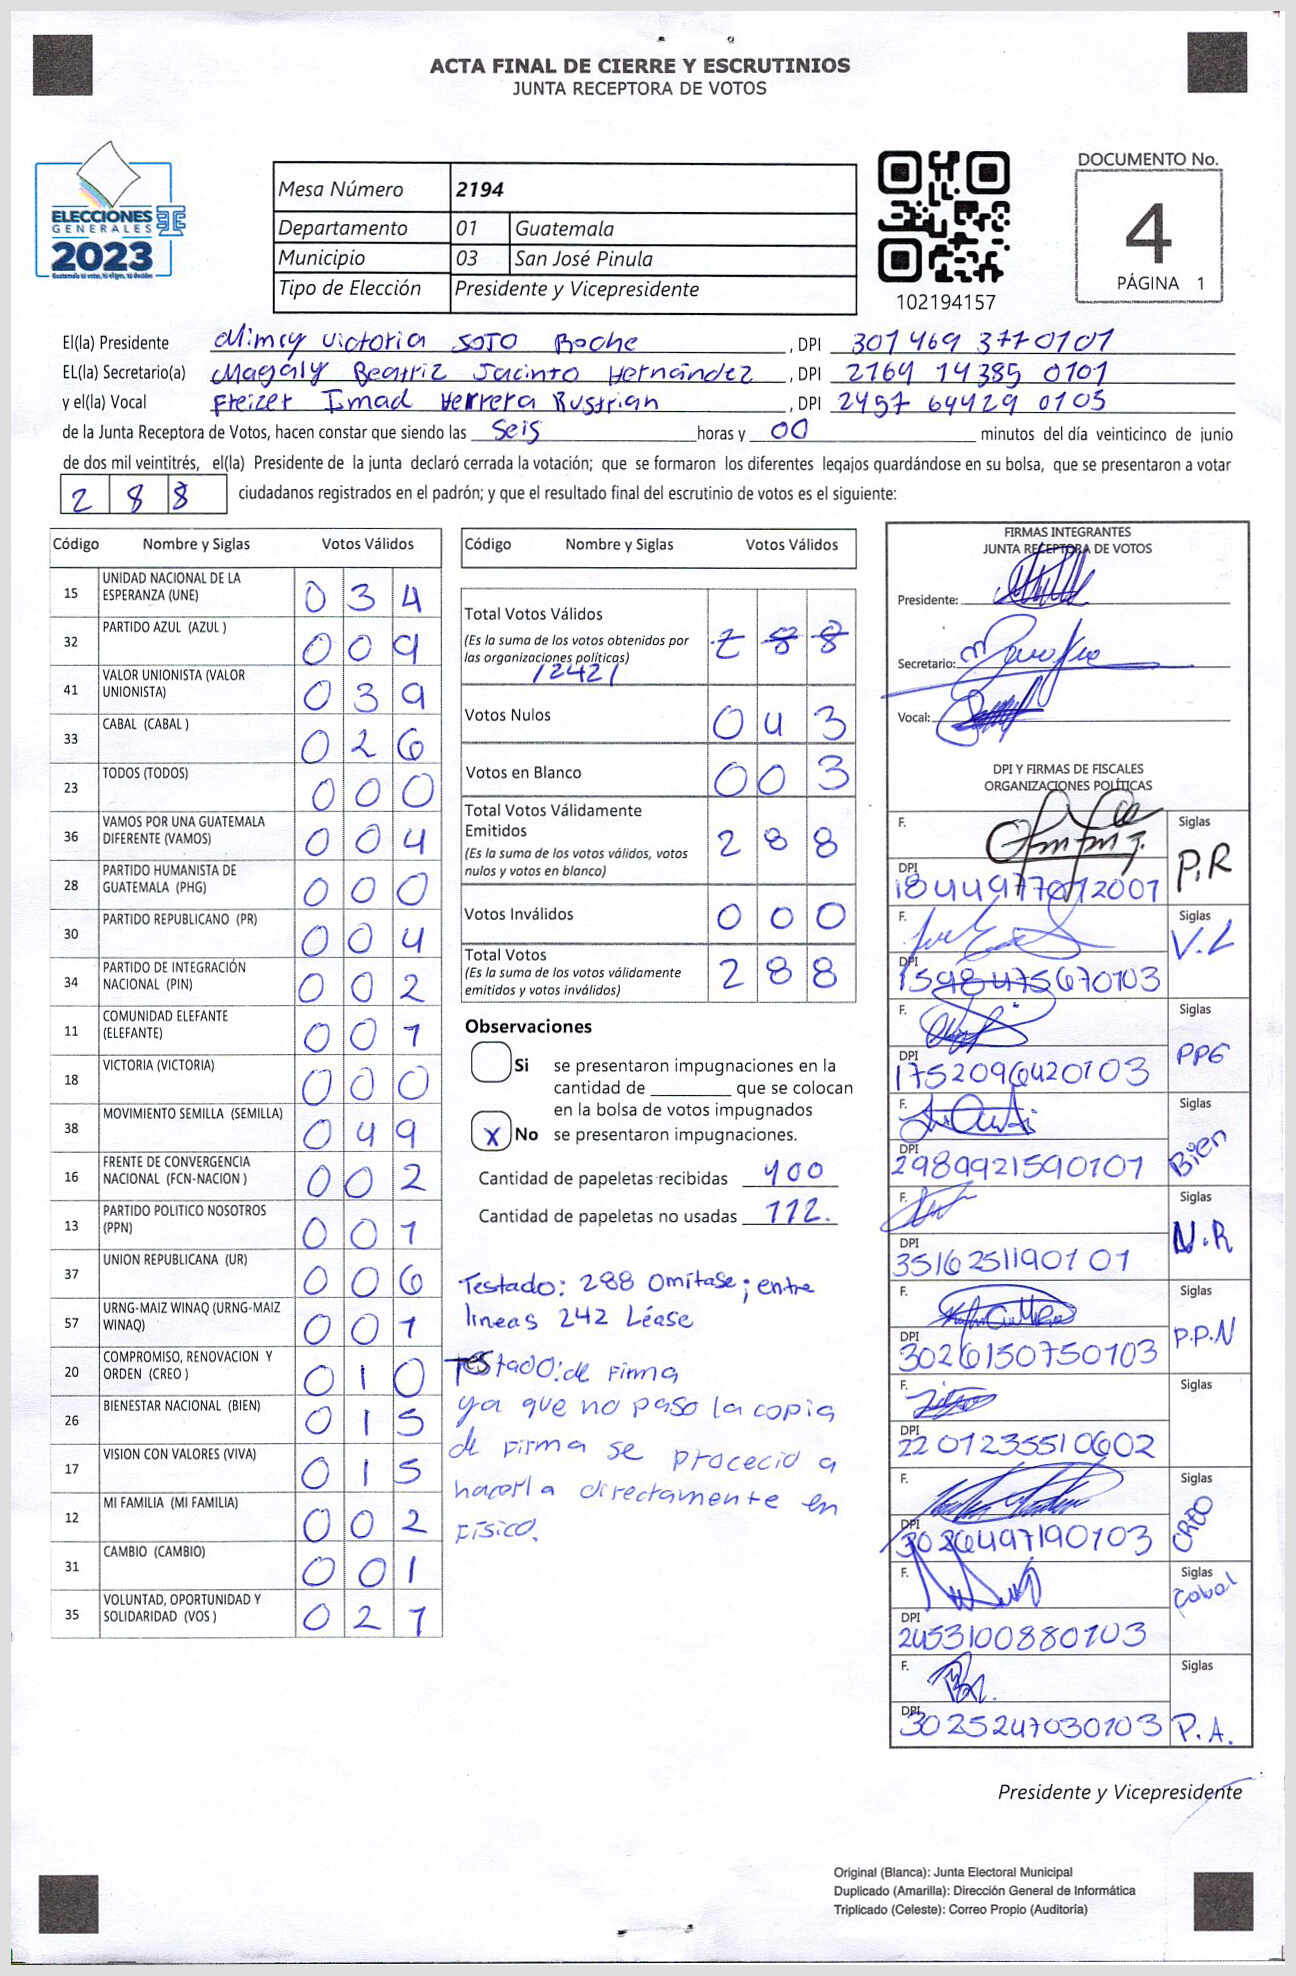 ACTA FINAL DE CIERRE Y ESCRUTINIOS
JUNTA RECEPTORA DE VOTOS
ELECCIONES
GENERALES
2023
Mesa Número 2194
Departamento 01 Guatemala
Municipio 03 San José Pinula
Tipo de Elección Presidente y Vicepresidente
102194157
DOCUMENTO No.
4
PÁGINA 1
El(la) Presidente Victoria SOTO Roche , DPI 301469 377 0101
EL(la) Secretario(a) Magaly Beatriz Jacinto Hernández , DPI 2169 14385 0101
y el(la) Vocal Imad Herrera Rustrian , DPI 2457 64429 0103
de la Junta Receptora de Votos, hacen constar que siendo las Seis horas y 00 minutos del día veinticinco de junio
de dos mil veintitrés, el(la) Presidente de la junta declaró cerrada la votación; que se formaron los diferentes legajos guardándose en su bolsa, que se presentaron a votar
288 ciudadanos registrados en el padrón; y que el resultado final del escrutinio de votos es el siguiente:
Código Nombre y Siglas Votos Válidos
15 UNIDAD NACIONAL DE LA ESPERANZA (UNE) 034
32 PARTIDO AZUL (AZUL ) 009
41 VALOR UNIONISTA (VALOR UNIONISTA) 039
33 CABAL (CABAL ) 026
23 TODOS (TODOS) 000
36 VAMOS POR UNA GUATEMALA DIFERENTE (VAMOS) 004
28 PARTIDO HUMANISTA DE GUATEMALA (PHG) 000
30 PARTIDO REPUBLICANO (PR) 004
34 PARTIDO DE INTEGRACIÓN NACIONAL (PIN) 002
11 COMUNIDAD ELEFANTE (ELEFANTE) 001
18 VICTORIA (VICTORIA) 000
38 MOVIMIENTO SEMILLA (SEMILLA) 049
16 FRENTE DE CONVERGENCIA NACIONAL (FCN-NACION ) 002
13 PARTIDO POLITICO NOSOTROS (PPN) 001
37 UNION REPUBLICANA (UR) 006
57 URNG-MAIZ WINAQ (URNG-MAIZ WINAQ) 001
20 COMPROMISO, RENOVACION Y ORDEN (CREO ) 010
26 BIENESTAR NACIONAL (BIEN) 015
17 VISION CON VALORES (VIVA) 015
12 MI FAMILIA (MI FAMILIA) 002
31 CAMBIO (CAMBIO) 001
35 VOLUNTAD, OPORTUNIDAD Y SOLIDARIDAD (VOS ) 021
Código Nombre y Siglas Votos Válidos
Total Votos Válidos 288
(Es la suma de los votos obtenidos por
las organizaciones políticas)
/242/
Votos Nulos 043
Votos en Blanco 003
Total Votos Válidamente
Emitidos 288
(Es la suma de los votos válidos, votos
nulos y votos en blanco)
Votos Inválidos 000
Total Votos 288
(Es la suma de los votos válidamente
emitidos y votos inválidos)
Observaciones
Si se presentaron impugnaciones en la
cantidad de ________ que se colocan
en la bolsa de votos impugnados
X No se presentaron impugnaciones.
Cantidad de papeletas recibidas 400
Cantidad de papeletas no usadas 112.
Testado: 288 Omítase; entre
líneas 242 Léase
Testado: de Firma
ya que no paso la copia
de Firma se procecio a
hacerla directamente en
Físico.
FIRMAS INTEGRANTES
JUNTA RECEPTORA DE VOTOS
Presidente:
Secretario:
Vocal:
DPI Y FIRMAS DE FISCALES
ORGANIZACIONES POLÍTICAS
F. Siglas P.R
DPI 1844977072001
F. Siglas V.L
DPI 1598475670103
F. Siglas PPG
DPI 1752096420103
F. Siglas Bien
DPI 2989921590101
F. Siglas N.R
DPI 3516251190101
F. Siglas P.P.N
DPI 3026150750103
F. Siglas
DPI 2201235510602
F. Siglas CREO
DPI 3026497190103
F. Siglas Cabal
DPI 2453100880103
F. Siglas P.A.
DPI 3025247030103
Presidente y Vicepresidente
Original (Blanca): Junta Electoral Municipal
Duplicado (Amarilla): Dirección General de Informática
Triplicado (Celeste): Correo Propio (Auditoría)